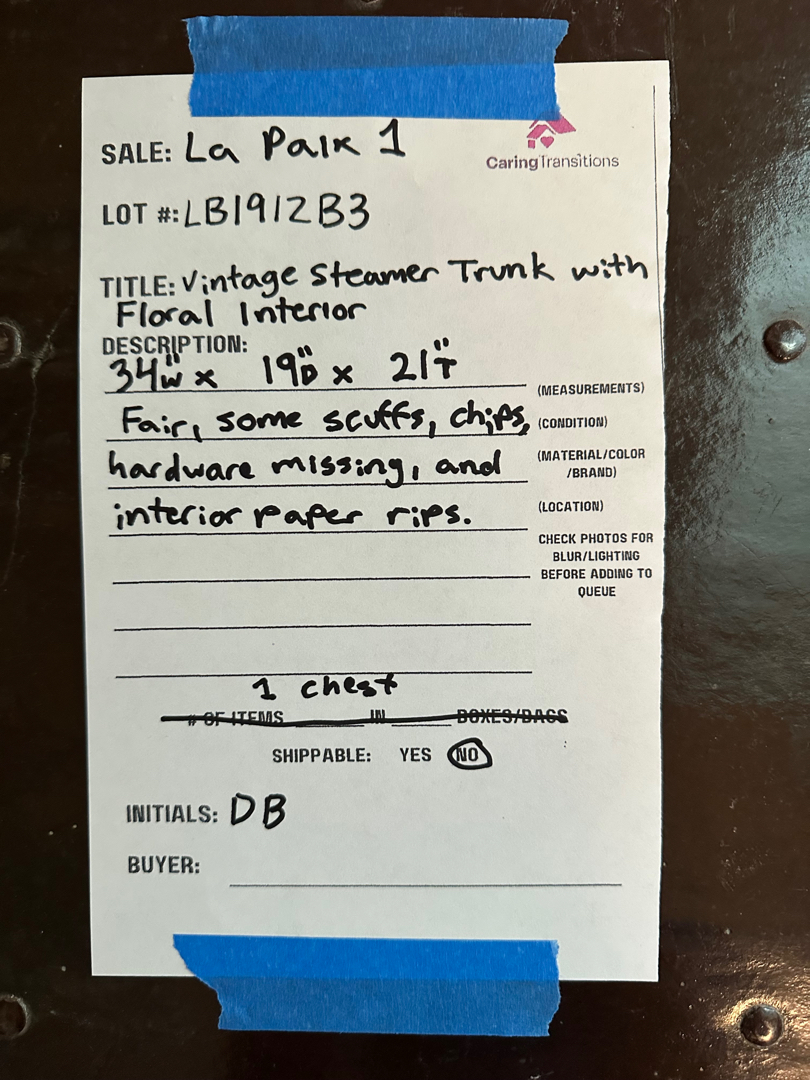 SALE: La Paix 1
CaringTransitions
LOT #: LB1912B3
TITLE: Vintage Steamer Trunk with
Floral Interior
DESCRIPTION:
34"W x 19"D x 21"T
(MEASUREMENTS)
Fair, some scuffs, chips,
(CONDITION)
hardware missing, and
(MATERIAL/COLOR
/BRAND)
interior paper rips.
(LOCATION)
CHECK PHOTOS FOR
BLUR/LIGHTING
BEFORE ADDING TO
QUEUE
1 chest
# OF ITEMS ______ IN ______ BOXES/BAGS
SHIPPABLE: YES NO
INITIALS: DB
BUYER: